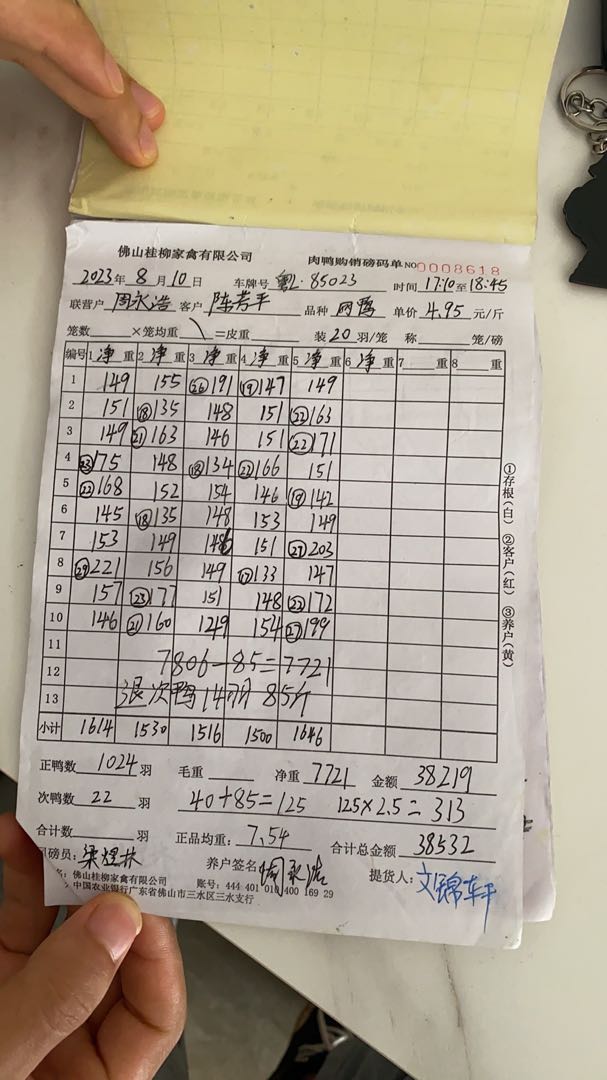 佛山桂柳家禽有限公司 肉鸭购销磅码单 NO 0008618
2023年8月10日 车牌号 粤L·85023 时间 17:10至18:45
联营户 周永浩 客户 陈芳平 品种 网鸭 单价 4.95 元/斤
笼数 ×笼均重 \ =皮重 装 20 羽/笼 称 笼/磅
编号 1 净 重 2 净 重 3 净 重 4 净 重 5 净 重 6 净 重 7 重 8 重
1 149 155 ㉖191 ⑲147 149
2 151 ⑱135 148 151 ㉒163
3 149 ㉑163 146 151 ㉒171
4 ㉓175 148 ⑱134 ㉒166 151
5 ㉒168 152 154 146 ⑲142
6 145 ⑱135 148 153 149
7 153 149 146 151 ㉗203
8 ㉙221 156 149 ⑰133 147
9 157 ㉓177 151 148 ㉒172
10 146 ㉑160 149 154 ㉗199
11
7806-85=7721
12
13 退次鸭14羽 85斤
小计 1614 1530 1516 1500 1646
正鸭数 1024 羽 毛重 净重 7721 金额 38219
次鸭数 22 羽 40+85=125 125×2.5=313
合计数 羽 正品均重: 7.54 合计总金额 38532
司磅员: 梁煜林 养户签名: 周永浩 提货人: 文锦车干
佛山桂柳家禽有限公司 账号: 444 401 010 400 169 29
中国农业银行广东省佛山市三水区三水支行
①存根(白) ②客户(红) ③养户(黄)